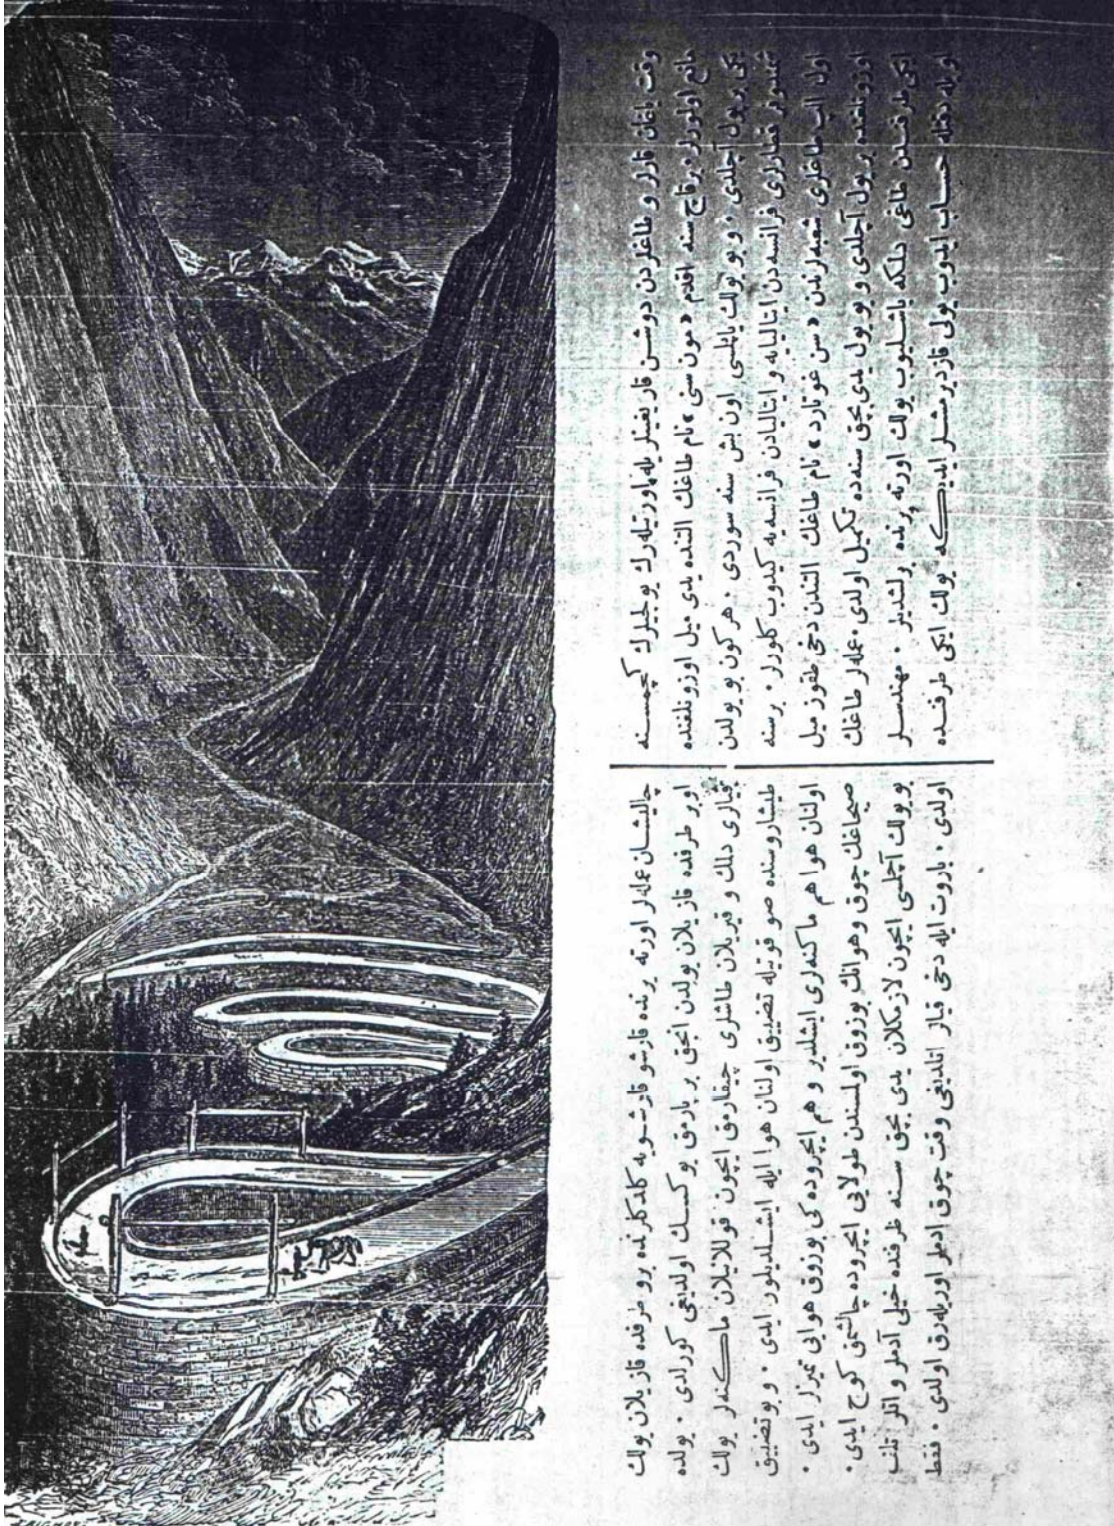 وقت یاغان قارلر و طاغلردن دوشن قار یغینلریله اورتیله‌رك یولجیلرك كچمسنه
مانع اولورلر. برقاچ سنه اقدام «مون سنی» نام طاغك التنده یدی میل اوزونلغنده
یكی بر یول آچلدی. و بو یولك یاپلسی اون بش سنه سوردی. هر كون بو یولدن
شمندوفر قطارلری فرانسه‌دن ایتالیایه و ایتالیادن فرانسه‌یه كیدوب كلورلر. برسنه
اول الپ طاغلری شعبه‌لرندن «سن غوتارد» نام طاغك التندن دخی طقوز میل
اوزونلغنده بر یول آچلدی و بو یول یدی بچق سنه‌ده تكمیل اولدی. عمله‌لر طاغك
ایكی طرفندن طاغی دلمكه باشلیوب یولك اورته یرنده برلشدیلر. مهندسلر
اویله دقتله حساب ایدوب یولی قازدیرمشلر ایدیكه یولك ایكی طرفنده
چالیشان عمله‌لر اورته یرنده قارشو قارشویه كلدكلرنده برو طرفده قازیلان یولك
اوبر طرفده قازیلان یولدن انجق بر پارمق یوكسك اولدیغی كورلدی. یولده
مجاری دلمك و قیریلان طاشلری چیقارمق ایچون قوللانیلان ماكنه‌لر یولك
طیشاروسنده صو قوتیله تضییق اولنان هوا ایله ایشلدیلور ایدی. و بو تضییق
اولنان هوا هم ماكنه‌لری ایشلدیر و هم ایچروده كی بوزوق هوایی تمیزلر ایدی.
صیجاغك چوق و هوانك بوزوق اولمسندن طولایی ایچروده چالشمق كوج ایدی.
بو یولك آچلسی ایچون لازمكلان یدی بچق سنه ظرفنده خیلی آدملر و اتلر تلف
اولدی. باروت ایله دخی قیالر اتلدیغی وقت چوق ادملر اوریله‌رق اولدی. فقط